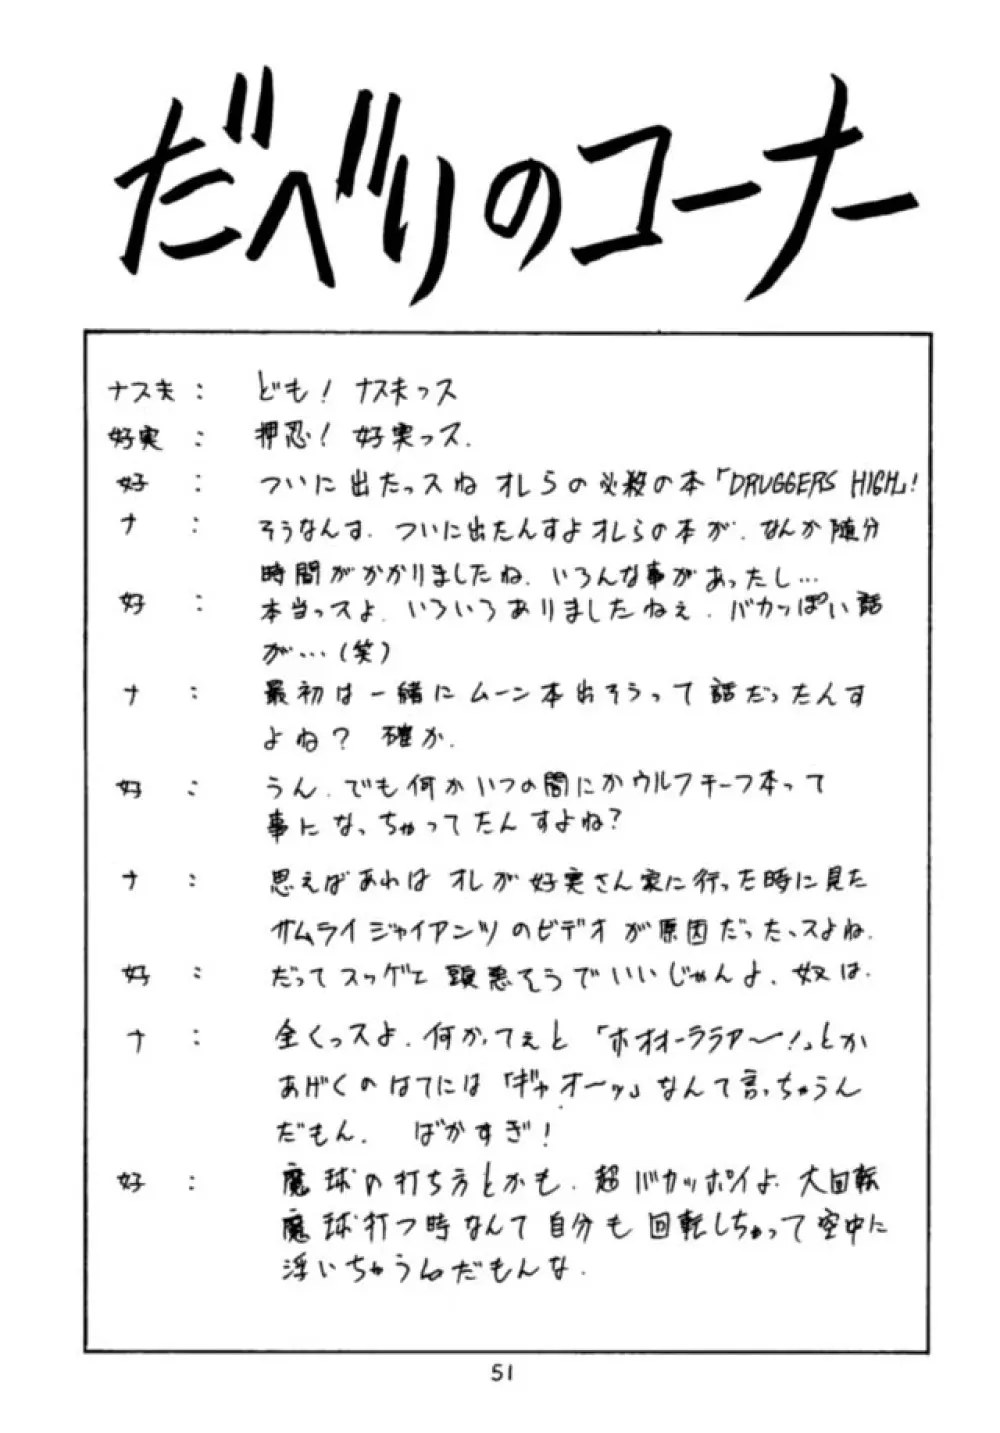 だべりのコーナー
ナス夫: ども! ナス夫っス
好実: 押忍! 好実っス.
好: ついに出たっスね オレらの必殺の本「DRUGGERS HIGH」!
ナ: そうなんす. ついに出たんすよオレらの本が. なんか随分
時間がかかりましたね. いろんな事があったし…
好: 本当っスよ. いろいろありましたねぇ. バカっぽい話
が…(笑)
ナ: 最初は一緒にムーン本出そうって話だったんす
よね? 確か.
好: うん. でも何かいつの間にかウルフチーフ本って
事になっちゃってたんすよね?
ナ: 思えばあれはオレが好実さん家に行った時に見た
サムライジャイアンツのビデオが原因だったっスよね.
好: だってスッゲェ頭悪そうでいいじゃんよ. 奴は.
ナ: 全くっスよ. 何かってぇと「ホオオーララア〜!」とか
あげくのはてには「ギャオーッ」なんて言っちゃうん
だもん. ばかすぎ!
好: 魔球の打ち方とかも. 超バカッポイよ. 大回転
魔球打つ時なんて自分も回転しちゃって空中に
浮いちゃうんだもんな.
51